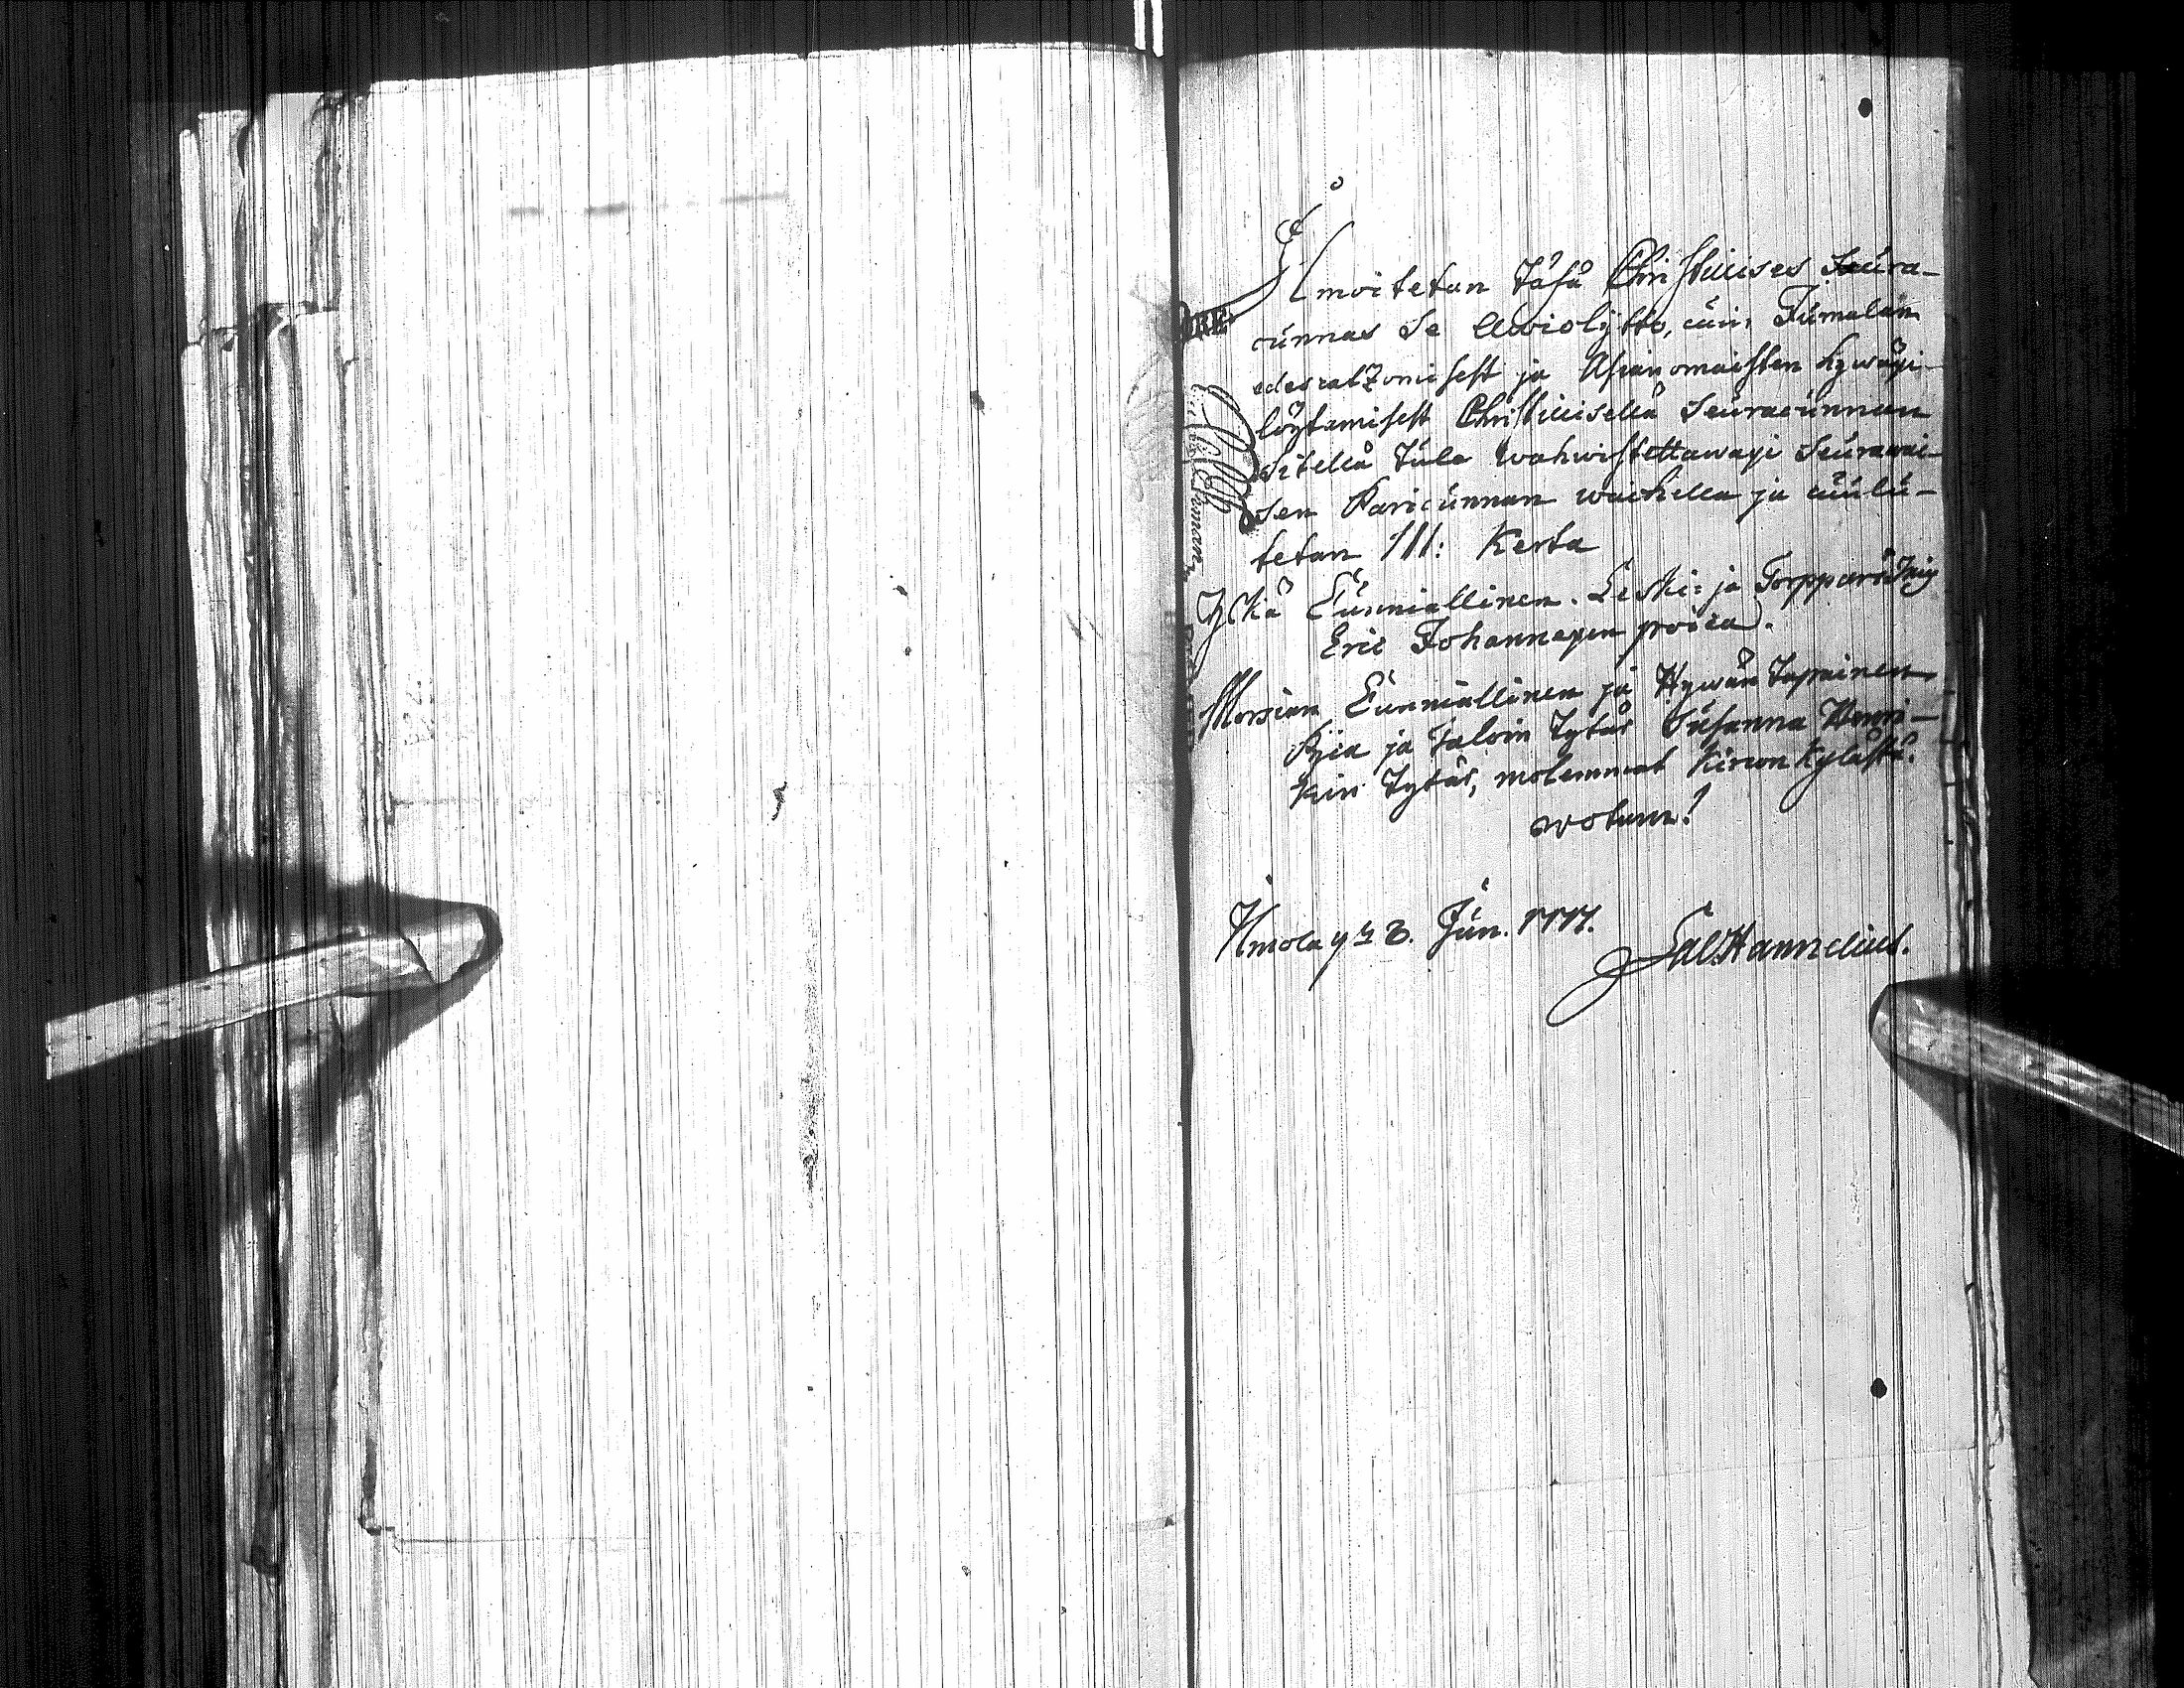 Ilmoitetan täsä Christillises Seura-
cunnas se Awiolijtto, cuin Jumalan
edescatzomisest ja Asianomaisten hywäxi
löytämisest Christillisellä Seuracunnan
sitellä tule wahwistettawaxi seurawai-
sen Pariscunnan waihella ja cuulu-
tetan III: Kerta
Ylkä Cunniallinen Leski- ja Torppari
Eric Johannexen poica.
Morsian Cunniallinen ja Hywän Tapainen
Pijca ja Taloin Tytär Susanna Henri-
kin Tytär, molemmat Kircon Kyläst.
votum!
Ilmola 8. Jun.
Sal. Hannelius.